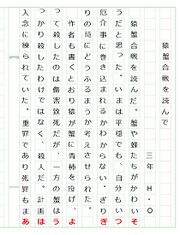 猿蟹合戦を読んで
三年 H・O
猿蟹合戦を読んで、蟹や蜂たちがかわいそ
うだと思った。いまは平穏でも、自分もいつ
厄介事に巻き込まれるかわからない。ぎりぎ
りの時にどうふるまうか考えさせられた。
作者も書くとおり猿が蟹に青柿を投げ、よ
って殺したのは傷害致死だが、一方の蟹はう
っかり殺したわけではなく、殺人だ。計画は
入念に練られていた。重罪であり死罪もまあ